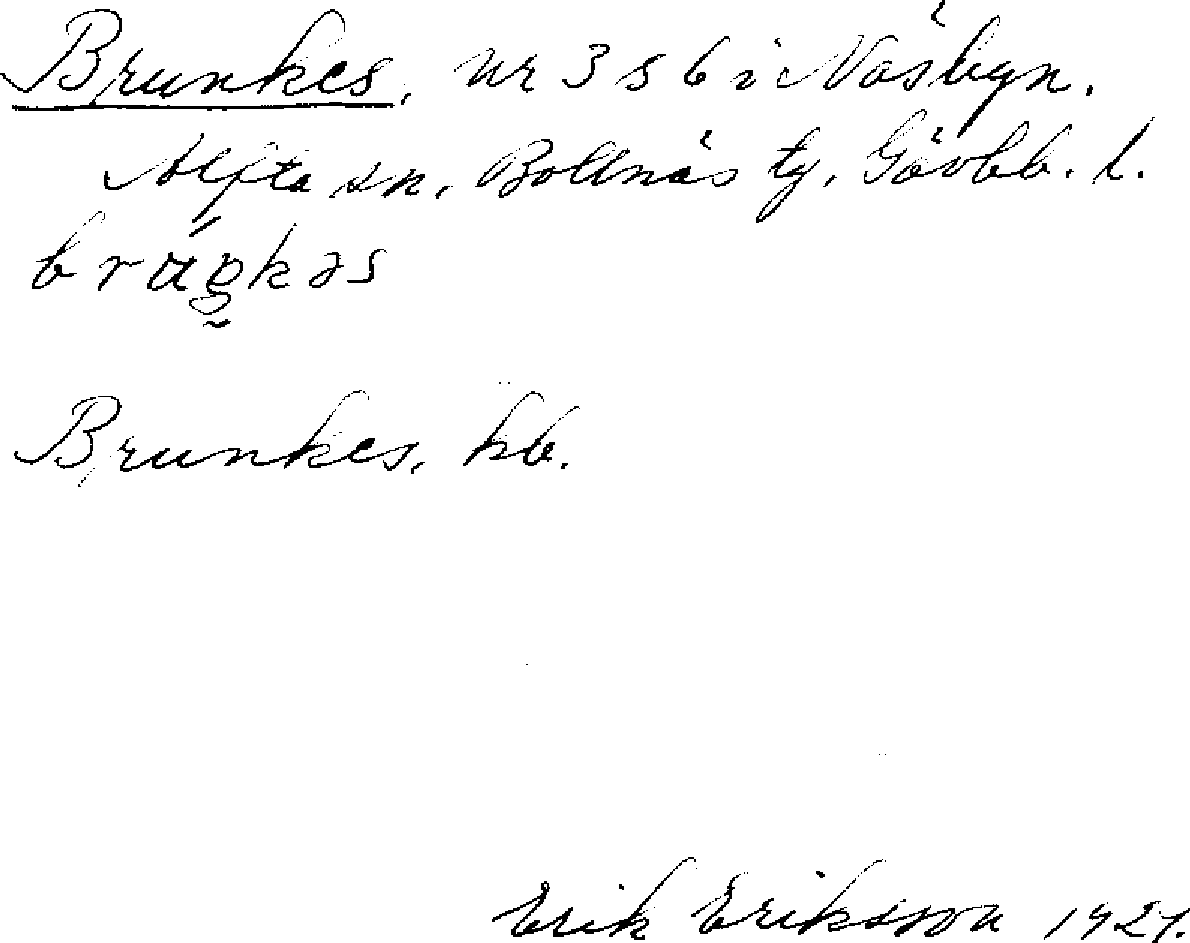 Brunkes, nr 3 s 6 i Näsbyn.
Alfta sn, Bollnäs tg, Gävleb. l.
Brunkes, kb.
Erik Eriksson 1927.